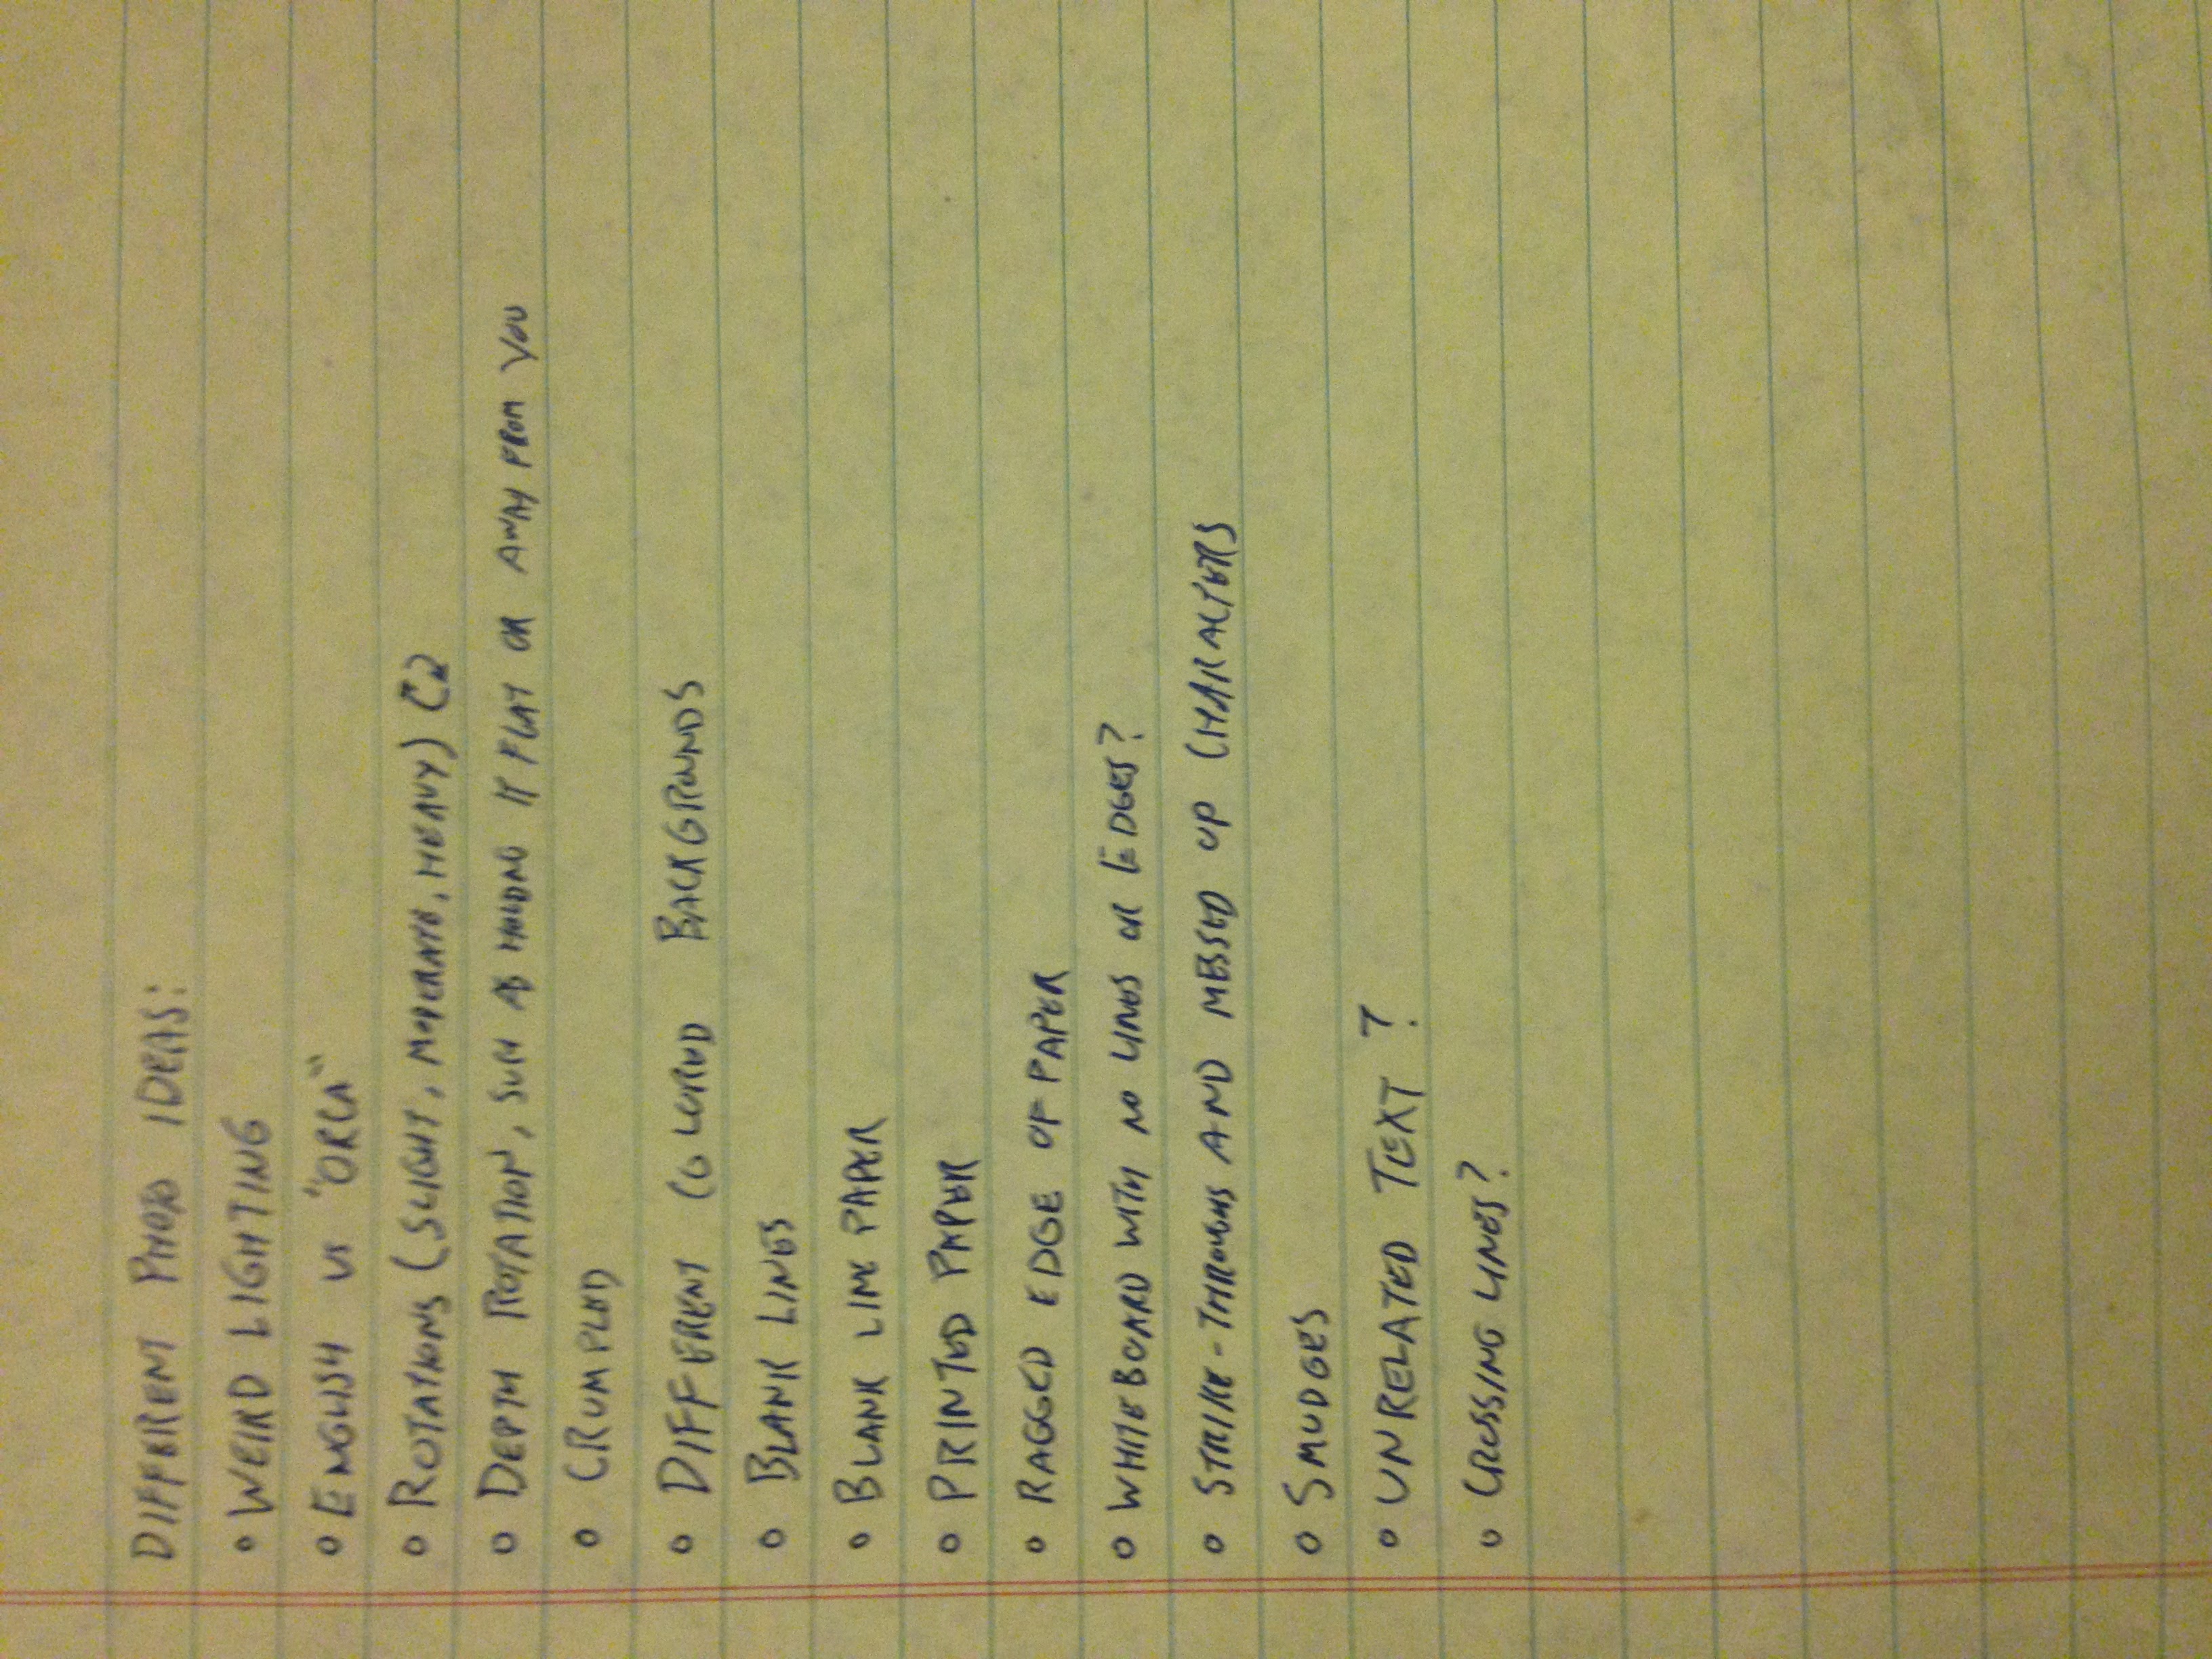 DIFFERENT PHOTO IDEAS:
◦ WEIRD LIGHTING
◦ ENGLISH VS "ORCA"
◦ ROTATIONS (SLIGHT, MODERATE, HEAVY) ↻
◦ DEPTH ROTATION, SUCH AS HOLDING IT FLAT OR AWAY FROM YOU
◦ CRUMPLED
◦ DIFFERENT COLORED BACKGROUNDS
◦ BLANK LINES
◦ BLANK LINE PAPER
◦ PRINTED PAPER
◦ RAGGED EDGE OF PAPER
◦ WHITEBOARD WITH NO LINES OR EDGES?
◦ STRIKE-THROUGHS AND MESSED UP CHARACTERS
◦ SMUDGES
◦ UNRELATED TEXT?
◦ CROSSING LINES?